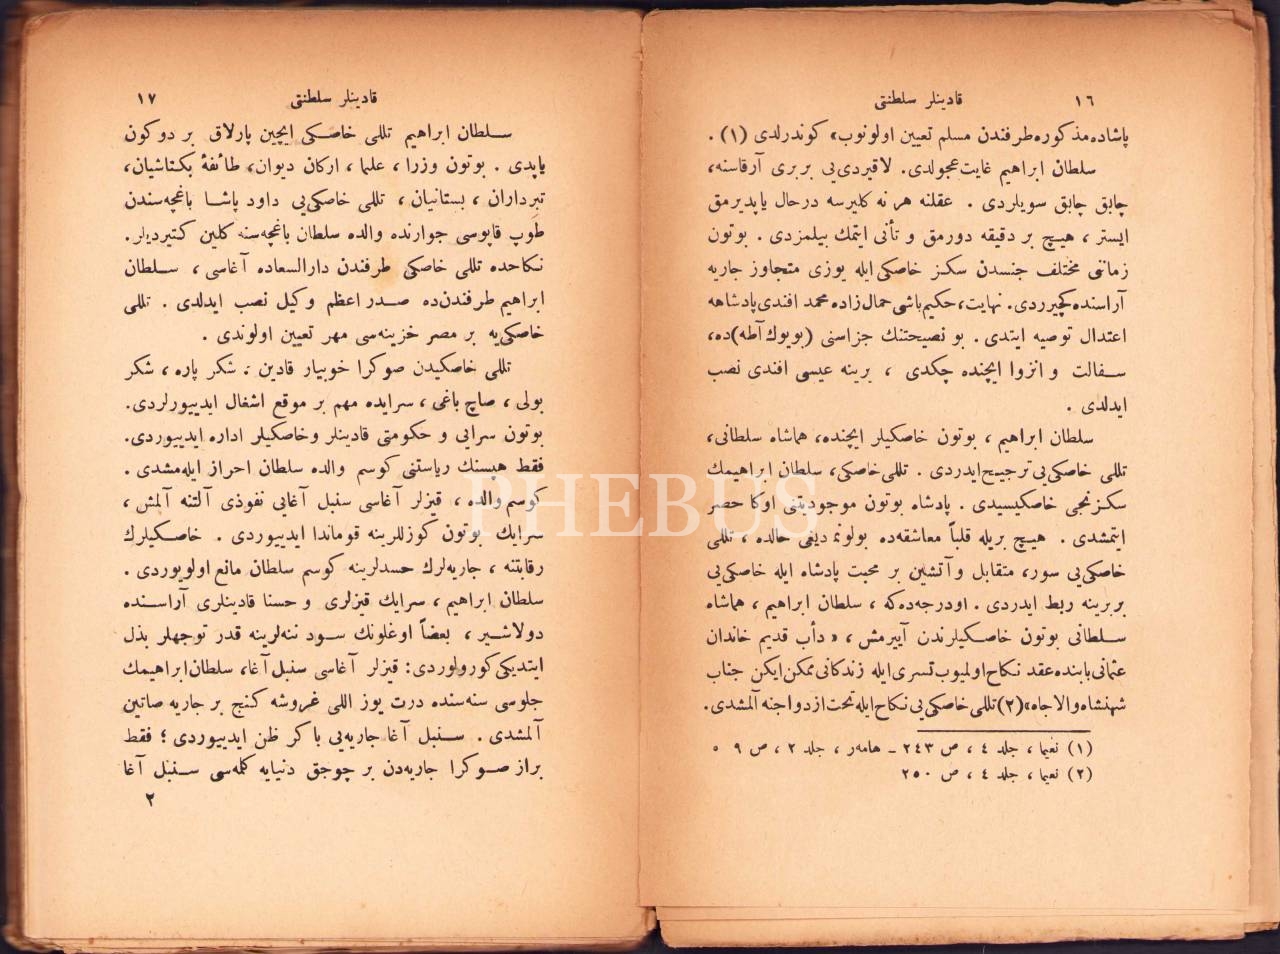 ١٦ قادينلر سلطنتى
پاشاده مذكوره طرفندن مسلم تعيين اولونوب» كوندرلدى (١) .
سلطان ابراهيم غايت عجولدى. لاقيردى‌يى بربرى آرقاسنه،
چابق چابق سويلردى . عقلنه هر نه كليرسه درحال ياپديرمق
ايستر ، هيچ بر دقيقه دورمق و تأنى ايتمك بيلمزدى . بوتون
زماننى مختلف جنسدن سكز خاصكى ايله يوزى متجاوز جاريه
آراسنده كچيرردى. نهايت، حكيم باشى حمال زاده محمد افندى پادشاهه
اعتدال توصيه ايتدى . بو نصيحتنك جزاسنى (بويوك آطه)ده،
سفالت و انزوا ايچنده چكدى ، يرينه عيسى افندى نصب
ايدلدى .
سلطان ابراهيم ، بوتون خاصكيلر ايچنده، هماشاه سلطانى،
تللى خاصكى‌يى ترجيح ايدردى . تللى خاصكى، سلطان ابراهيمك
سكزنجى خاصكيسيدى . پادشاه بوتون موجوديتنى اوكا حصر
ايتمشدى . هيچ بريله قلباً معاشقه‌ده بولونمديغى حالده ، تللى
خاصكى‌يى سور، متقابل و آتشين بر محبت پادشاه ايله خاصكى‌يى
بربرينه ربط ايدردى . اودرجه‌ده كه ، سلطان ابراهيم ، هماشاه
سلطانى بوتون خاصكيلرندن آييرمش ، « دأب قديم خاندان
عثمانى بابنده عقد نكاح اولميوب تسرى ايله زندكانى ممكن ايكن جناب
شهنشاه والاجاه» (٢) تللى خاصكى‌يى نكاح ايله تحت ازدواجنه آلمشدى.
(١) نعيما ، جلد ٤ ، ص ٢٤٣ ـ هامه‌ر ، جلد ٢ ، ص ٩ ٥
(٢) نعيما ، جلد ٤ ، ص ٢٥٠
قادينلر سلطنتى ١٧
سلطان ابراهيم تللى خاصكى ايچين پارلاق بر دوكون
ياپدى . بوتون وزرا ، علما ، اركان ديوان، طائفۀ بكتاشيان،
تبرداران ، بستانيان ، تللى خاصكى‌يى داود پاشا باغچه‌سندن
طوپ قاپوسى جوارنده والده سلطان باغچه‌سنه كلين كتيرديلر.
نكاحده تللى خاصكى طرفندن دارالسعاده آغاسى ، سلطان
ابراهيم طرفندن‌ده صدراعظم وكيل نصب ايدلدى . تللى
خاصكى‌يه بر مصر خزينه‌سى مهر تعيين اولوندى .
تللى خاصكيدن صوكرا خوبيار قادين ، شكر پاره ، شكر
بولى ، صاچ باغى ، سرايده مهم بر موقع اشغال ايدييورلردى.
بوتون سرايى و حكومتى قادينلر و خاصكيلر اداره ايدييوردى.
فقط هپسنك رياستنى كوسم والده سلطان احراز ايله‌مشدى .
كوسم والده ، قيزلر آغاسى سنبل آغايى نفوذى آلتنه آلمش ،
سرايك بوتون كوزللرينه قوماندا ايدييوردى . خاصكيلرك
رقابتنه ، جاريه‌لرك حسدلرينه كوسم سلطان مانع اولويوردى .
سلطان ابراهيم ، سرايك قيزلرى و حسنا قادينلرى آراسنده
دولاشير ، بعضاً اوغلونك سود ننه‌لرينه قدر توجهلر بذل
ايتديكى كورولوردى: قيزلر آغاسى سنبل آغا، سلطان ابراهيمك
جلوسى سنه‌سنده درت يوز اللى غروشه كنج بر جاريه صاتين
آلمشدى . سنبل آغا جاريه‌يى باكر ظن ايدييوردى ؛ فقط
براز صوكرا جاريه‌دن بر چوجق دنيايه كلمه‌سى سنبل آغا
٢
PHEBUS